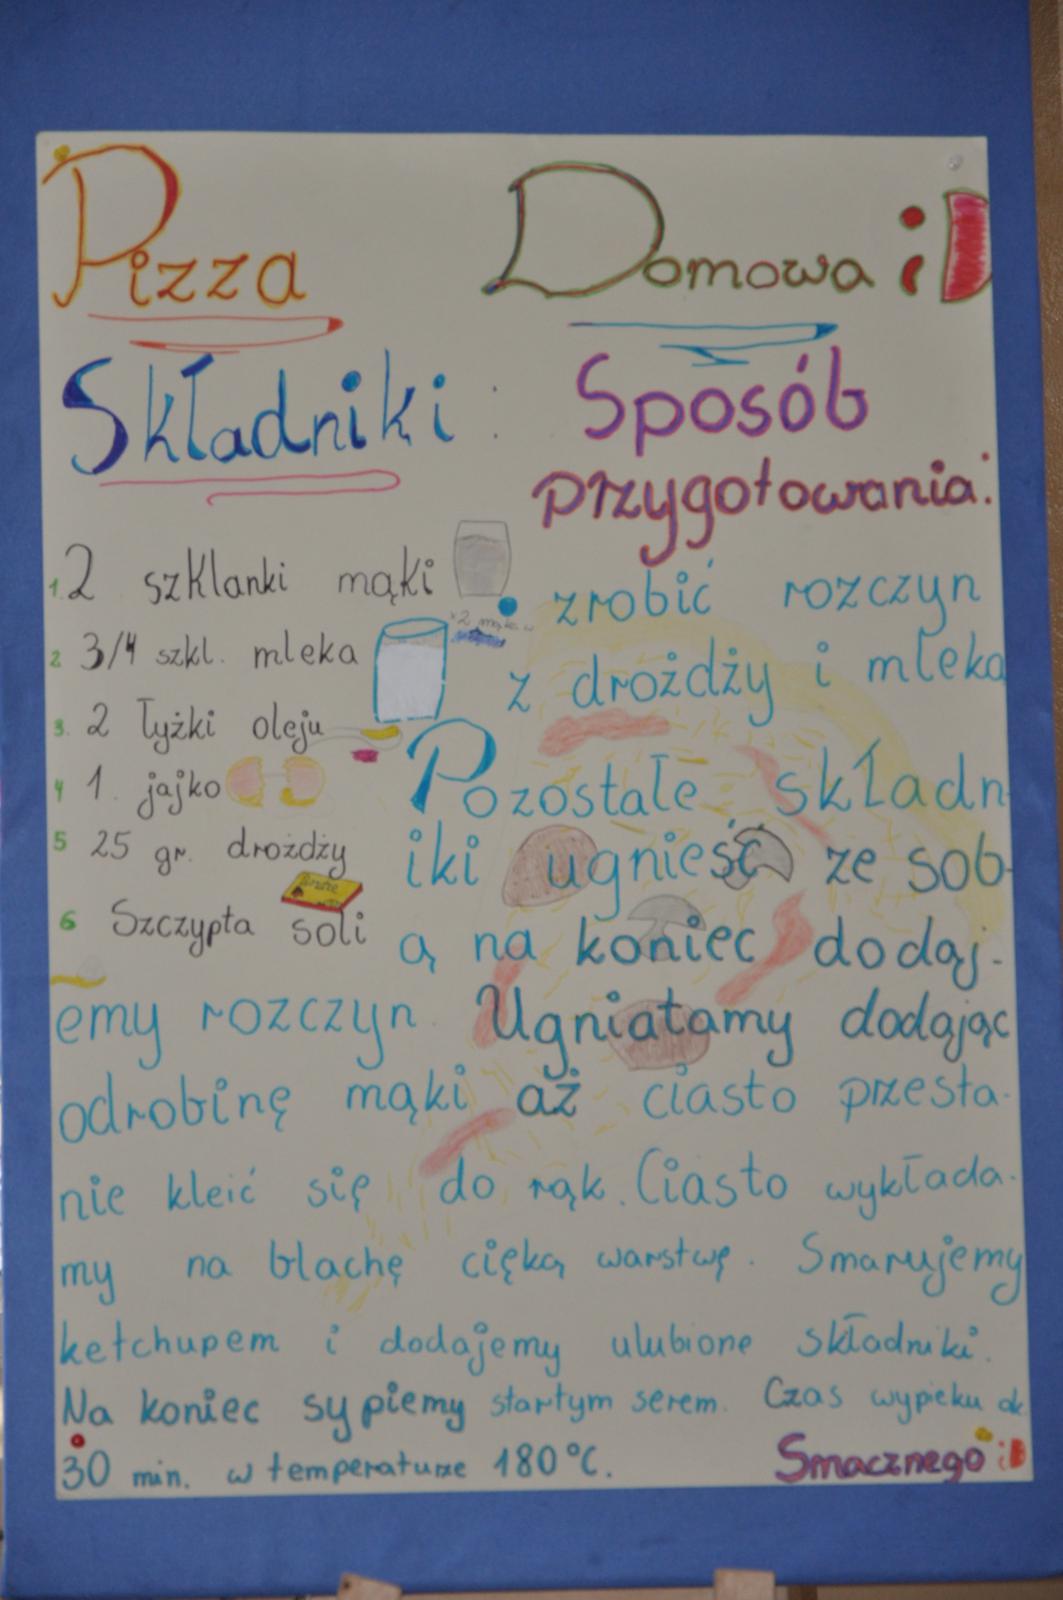 Pizza Domowa ;D
Składniki : Sposób
przygotowania:
1. 2 szklanki mąki
2 3/4 szkl. mleka
3. 2 łyżki oleju
4 1. jajko
5 25 gr. drożdży
6 Szczypta soli
zrobić rozczyn
z drożdży i mleka
Pozostałe składn-
iki ugnieść ze sob-
ą na koniec dodaj-
emy rozczyn. Ugniatamy dodając
odrobinę mąki aż ciasto przesta-
nie kleić się do rąk. Ciasto wykłada-
my na blachę cięką warstwę. Smarujemy
ketchupem i dodajemy ulubione składniki.
Na koniec sypiemy startym serem. Czas wypieku ok
30 min. w temperaturze 180°C.
Smacznego ;D